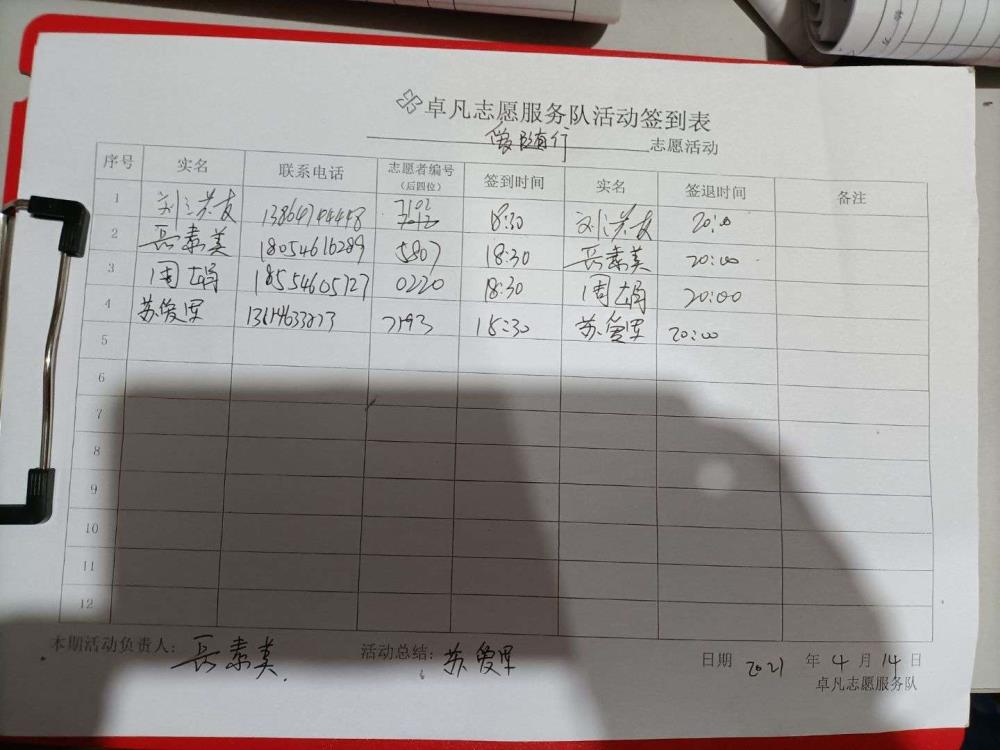 卓凡志愿服务队活动签到表
爱随行 志愿活动
序号 实名 联系电话 志愿者编号（后四位） 签到时间 实名 签退时间 备注
1 刘 友 7102 18:30 刘 友
2 素美 18054616289 5807 18:30 素美 20:00
3 周 18554605727 0220 18:30 周 20:00
4 苏爱军 7193 18:30 苏爱军 20:00
5
6
7
8
9
10
11
12
本期活动负责人: 素美 活动总结: 苏爱军 日期 2021 年 4 月 14 日
卓凡志愿服务队